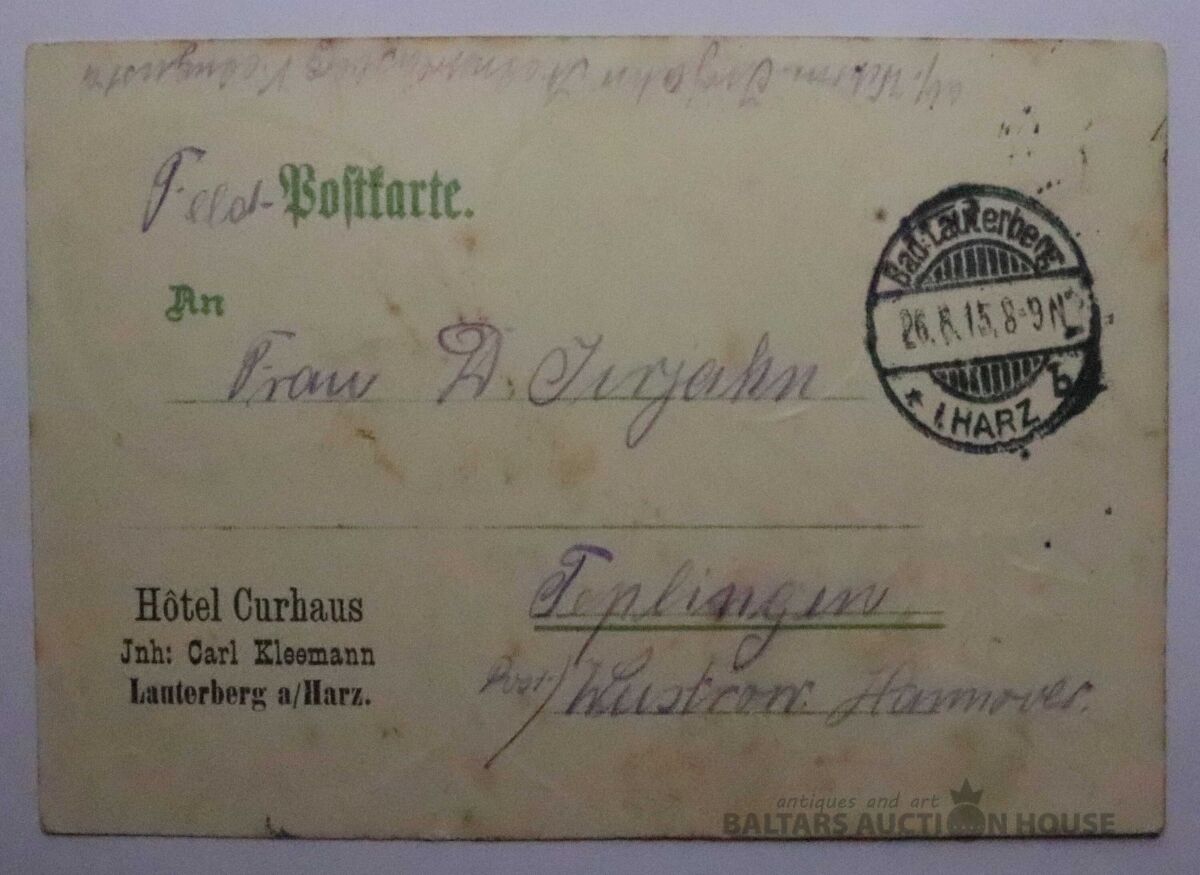 Feld-Postkarte.
An
Frau D. Jerjahn
Bad-Lauterberg
26.8.15.8-9N
* I.HARZ b
Teplingen
Post Wustrow Hannover.
Hôtel Curhaus
Jnh: Carl Kleemann
Lauterberg a/Harz.
antiques and art
BALTARS AUCTION HOUSE